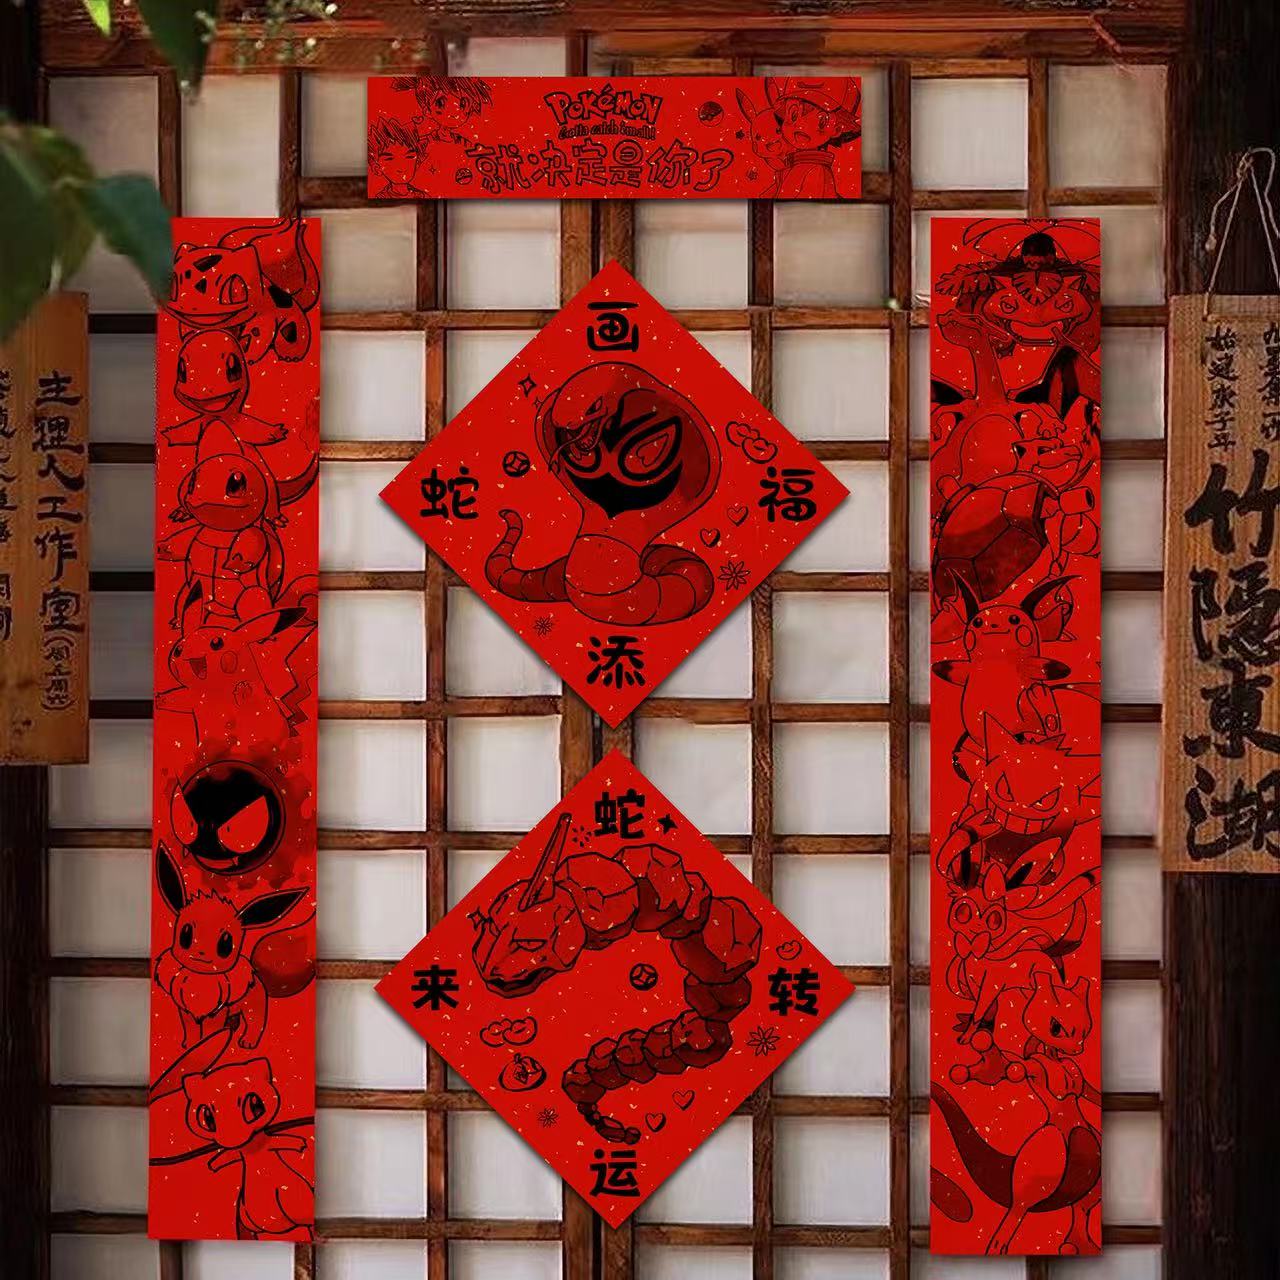 POKéMON
Gotta catch 'em all!
就决定是你了
画
蛇
福
添
蛇
来
转
运
主理人工作室(周五周六)
竹隐东湖
始建永子年